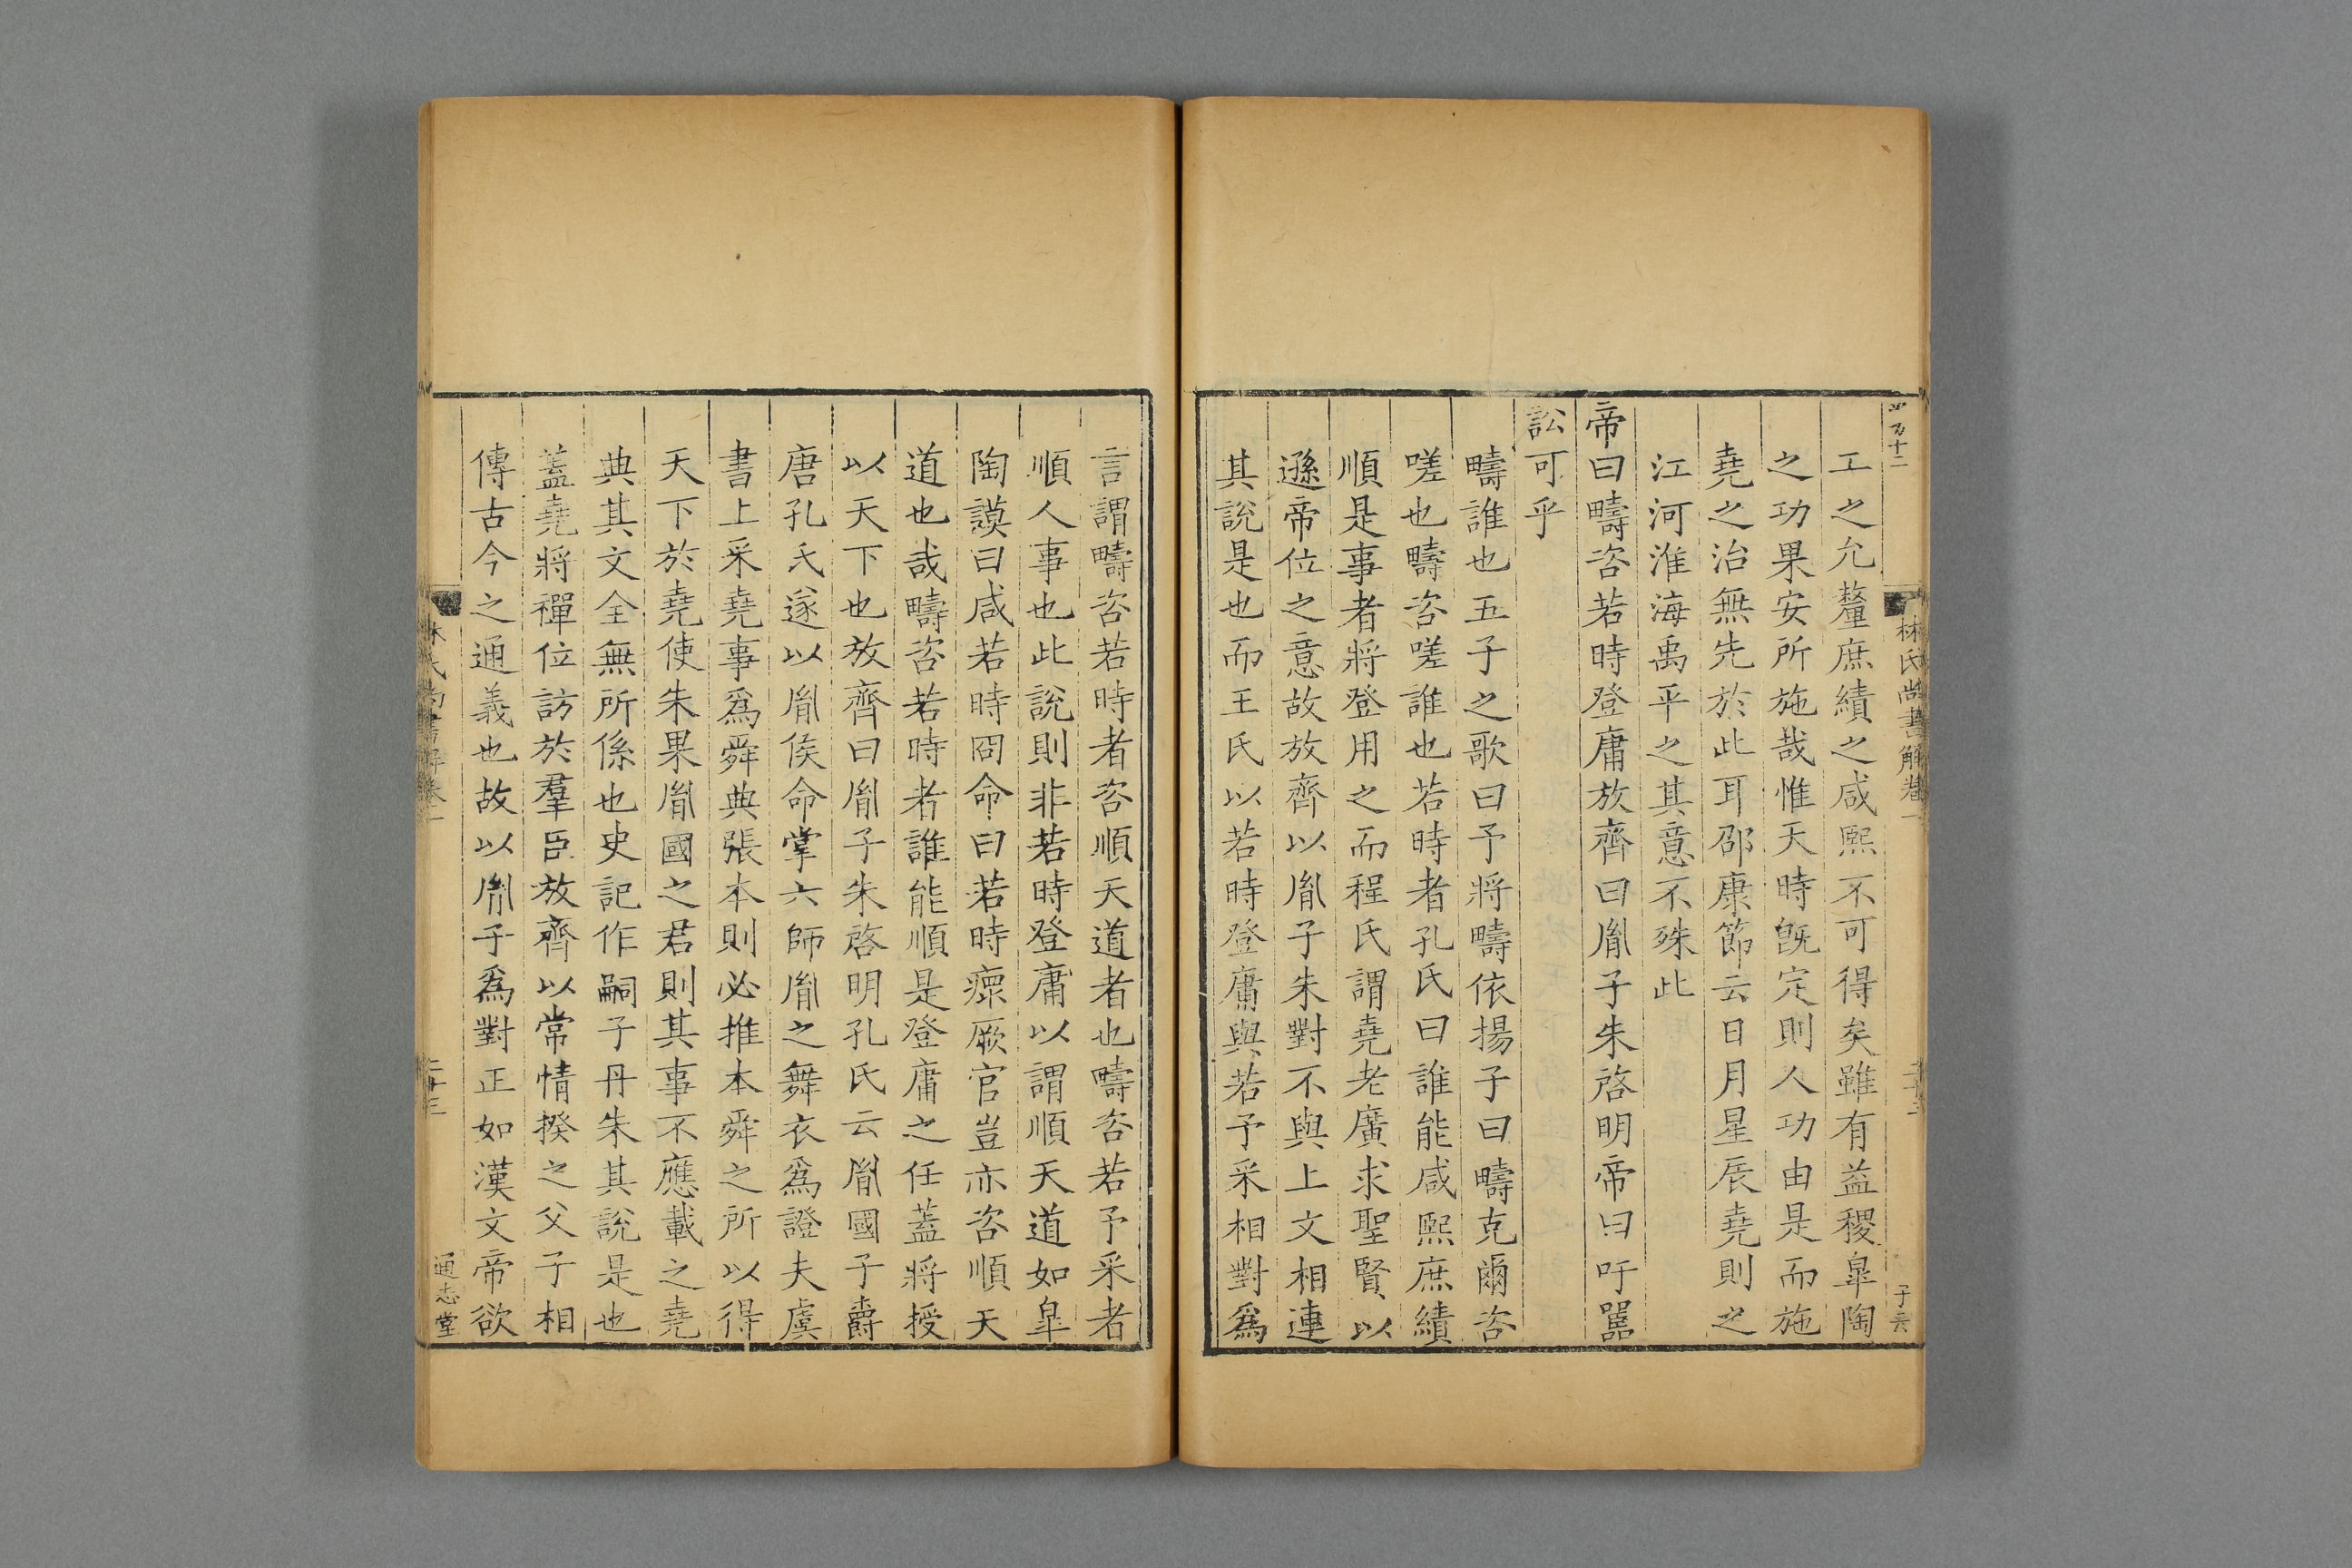 林氏尚書解卷一
工之允釐庶績之咸熙不可得矣雖有益稷臯陶
之功果安所施哉惟天時旣定則人功由是而施
堯之治無先於此耳邵康節云日月星辰堯則之
江河淮海禹平之其意不殊此
帝曰疇咨若時登庸放齊曰胤子朱啓明帝曰吁嚚
訟可乎
疇誰也五子之歌曰予將疇依揚子曰疇克爾咨
嗟也疇咨嗟誰也若時者孔氏曰誰能咸熙庶績
順是事者將登用之而程氏謂堯老廣求聖賢以
遜帝位之意故放齊以胤子朱對不與上文相連
其說是也而王氏以若時登庸與若予采相對爲
言謂疇咨若時者咨順天道者也疇咨若予采者
順人事也此說則非若時登庸以謂順天道如臯
陶謨曰咸若時冏命曰若時瘝厥官豈亦咨順天
道也哉疇咨若時者誰能順是登庸之任蓋將授
以天下也放齊曰胤子朱啓明孔氏云胤國子爵
唐孔氏遂以胤侯命掌六師胤之舞衣爲證夫虞
書上采堯事爲舜典張本則必推本舜之所以得
天下於堯使朱果胤國之君則其事不應載之堯
典其文全無所係也史記作嗣子丹朱其說是也
蓋堯將禪位訪於羣臣放齊以常情揆之父子相
傳古今之通義也故以胤子爲對正如漢文帝欲
林氏尚書解卷一
二十三
通志堂